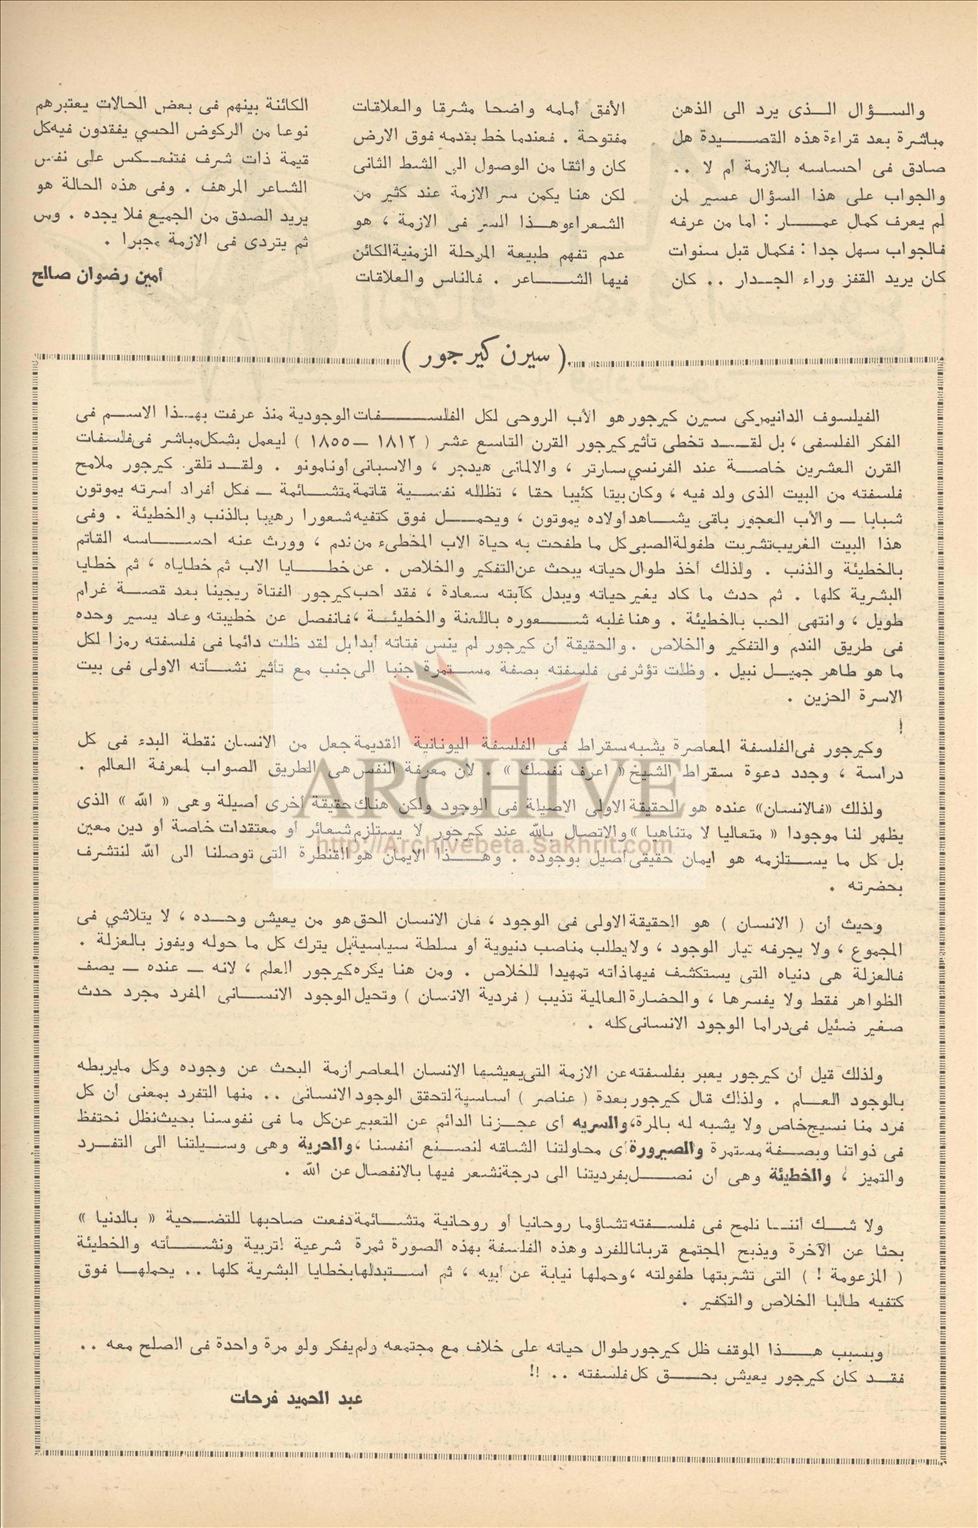 والسؤال الذى يرد الى الذهن
مباشرة بعد قراءة هذه القصيدة هل
صادق فى احساسه بالازمة ام لا ..
والجواب على هذا السؤال عسير لمن
لم يعرف كمال عمار : اما من عرفه
فالجواب سهل جدا : فكمال قبل سنوات
كان يريد القفز وراء الجدار .. كان
الأفق أمامه واضحا مشرقا والعلاقات
مفتوحة . فعندما خط بقدمه فوق الارض
كان واثقا من الوصول الى الشط الثانى
لكن هنا يكمن سر الازمة عند كثير من
الشعراء وهذا السر فى الازمة ، هو
عدم تفهم طبيعة المرحلة الزمنية الكائن
فيها الشاعر . فالناس والعلاقات
الكائنة بينهم فى بعض الحالات يعتبرهم
نوعا من الركوض الحسي يفقدون فيه كل
قيمة ذات شرف فتنعكس على نفس
الشاعر المرهف . وفى هذه الحالة هو
يريد الصدق من الجميع فلا يجده . ومن
ثم يتردى فى الازمة مجبرا .
أمين رضوان صالح
( سيرن كيرجور )
الفيلسوف الدانيمركى سيرن كيرجور هو الأب الروحى لكل الفلسفات الوجودية منذ عرفت بهذا الاسم فى
الفكر الفلسفى ، بل لقد تخطى تأثير كيرجور القرن التاسع عشر ( ١٨١٢ – ١٨٥٥ ) ليعمل بشكل مباشر فى فلسفات
القرن العشرين خاصة عند الفرنسي سارتر ، والالمانى هيدجر ، والاسبانى أونامونو . ولقد تلقى كيرجور ملامح
فلسفته من البيت الذى ولد فيه ، وكان بيتا كئيبا حقا ، تظلله نفسية قاتمة متشائمة – فكل أفراد أسرته يموتون
شبابا – والأب العجوز باقى يشاهد أولاده يموتون ، ويحمل فوق كتفيه شعورا رهيبا بالذنب والخطيئة . وفى
هذا البيت الغريب تشربت طفولة الصبى كل ما طفحت به حياة الاب المخطىء من ندم ، وورث عنه احساسه القاتم
بالخطيئة والذنب . ولذلك أخذ طوال حياته يبحث عن التفكير والخلاص . عن خطايا الاب ثم خطاياه ، ثم خطايا
البشرية كلها . ثم حدث ما كاد يغير حياته ويبدل كآبته سعادة ، فقد أحب كيرجور الفتاة ريجينا بعد قصة غرام
طويل ، وانتهى الحب بالخطيئة . وهنا غلبه شعوره باللعنة والخطيئة ، فانفصل عن خطيبته وعاد يسير وحده
فى طريق الندم والتفكير والخلاص . والحقيقة أن كيرجور لم ينس فتاته أبدا بل لقد ظلت دائما فى فلسفته رمزا لكل
ما هو طاهر جميل نبيل . وظلت تؤثر فى فلسفته بصفة مستمرة جنبا الى جنب مع تأثير نشأته الاولى فى بيت
الاسرة الحزين .
وكيرجور فى الفلسفة المعاصرة يشبه سقراط فى الفلسفة اليونانية القديمة جعل من الانسان نقطة البدء فى كل
دراسة ، وجدد دعوة سقراط الشيخ « اعرف نفسك » . لأن معرفة النفس هى الطريق الصواب لمعرفة العالم .
ولذلك «فالانسان» عنده هو الحقيقة الاولى الاصيلة فى الوجود ولكن هناك حقيقة أخرى أصيلة وهى « الله » الذى
يظهر لنا موجودا « متعاليا لا متناهيا » والاتصال بالله عند كيرجور لا يستلزم شعائر أو معتقدات خاصة أو دين معين
بل كل ما يستلزمه هو ايمان حقيقى أصيل بوجوده . وهذا الايمان هو القنطرة التى توصلنا الى الله لنتشرف
بحضرته .
وحيث ان ( الانسان ) هو الحقيقة الاولى فى الوجود ، فان الانسان الحق هو من يعيش وحده ، لا يتلاشي فى
المجموع ، ولا يجرفه تيار الوجود ، ولا يطلب مناصب دنيوية أو سلطة سياسية بل يترك كل ما حوله ويفوز بالعزلة .
فالعزلة هى دنياه التى يستكشف فيها ذاته تمهيدا للخلاص . ومن هنا يكره كيرجور العلم ، لانه – عنده – يصف
الظواهر فقط ولا يفسرها ، والحضارة العالمية تذيب ( فردية الانسان ) وتحيل الوجود الانسانى المفرد مجرد حدث
صغير ضئيل فى دراما الوجود الانسانى كله .
ولذلك قيل أن كيرجور يعبر بفلسفته عن الازمة التى يعيشها الانسان المعاصر أزمة البحث عن وجوده وكل ما يربطه
بالوجود العام . ولذلك قال كيرجور بعدة ( عناصر ) أساسية لتحقق الوجود الانسانى .. منها التفرد بمعنى أن كل
فرد منا نسيج خاص ولا يشبه له بالمرة، والسريه أى عجزنا الدائم عن التعبير عن كل ما فى نفوسنا بحيث نظل نحتفظ
فى ذواتنا وبصفة مستمرة والصيرورة أى محاولتنا الشاقه لنصنع أنفسنا ، والحرية وهى وسيلتنا الى التفرد
والتميز ، والخطيئة وهى أن نصل بفرديتنا الى درجة نشعر فيها بالانفصال عن الله .
ولا شك أننا نلمح فى فلسفته تشاؤما روحانيا أو روحانية متشائمة دفعت صاحبها للتضحية « بالدنيا »
بحثا عن الآخرة ويذبح المجتمع قربانا للفرد وهذه الفلسفة بهذه الصورة ثمرة شرعية لتربية ونشأته والخطيئة
( المزعومة ! ) التى تشربتها طفولته ، وحملها نيابة عن أبيه ، ثم استبدلها بخطايا البشرية كلها .. يحملها فوق
كتفيه طالبا الخلاص والتكفير .
وبسبب هذا الموقف ظل كيرجور طوال حياته على خلاف مع مجتمعه ولم يفكر ولو مرة واحدة فى الصلح معه ..
فقد كان كيرجور يعيش بحق كل فلسفته .. !!
عبد الحميد فرحات
ARCHIVE
http://Archivebeta.Sakhrit.com